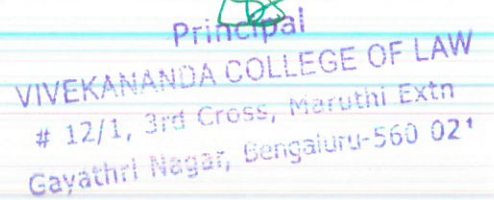 Principal
VIVEKANANDA COLLEGE OF LAW
# 12/1, 3rd Cross, Maruthi Extn
Gayathri Nagar, Bengaluru-560 021